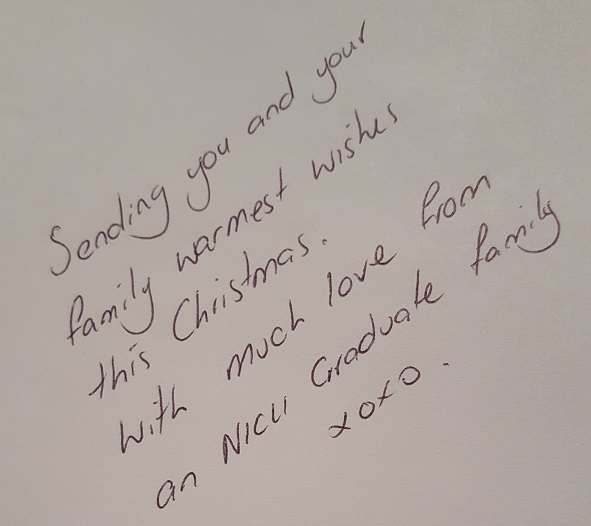 Sending you and your
family warmest wishes
this Christmas.
With much love from
an NICU Graduate family
xoxo.